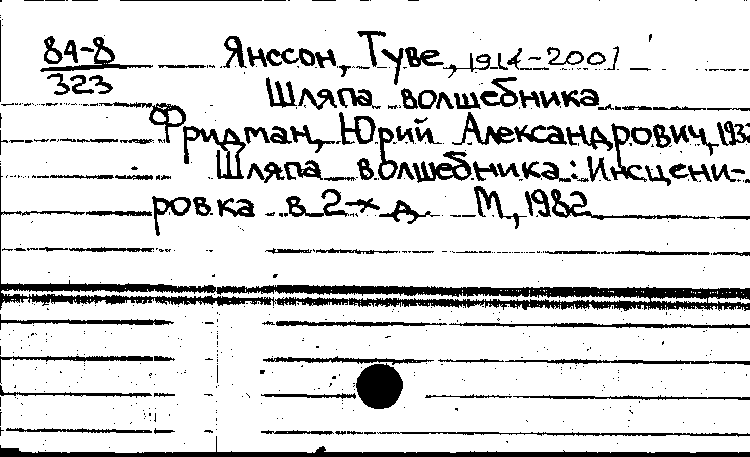 84-8 Янссон, Туве, 1914-2001
323 Шляпа волшебника
Фридман, Юрий Александрович, 1932
Шляпа волшебника: Инсцени-
ровка в 2-х д. М, 1982